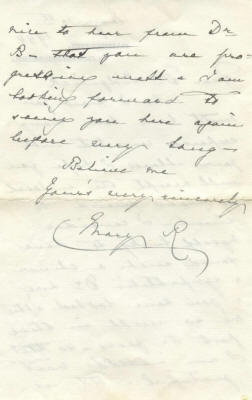 nice to hear from Dr
B– that you are pro-
gressing well & I am
looking forward to
seeing you here again
before very long –
Believe me
Yours very sincerely
Mary R